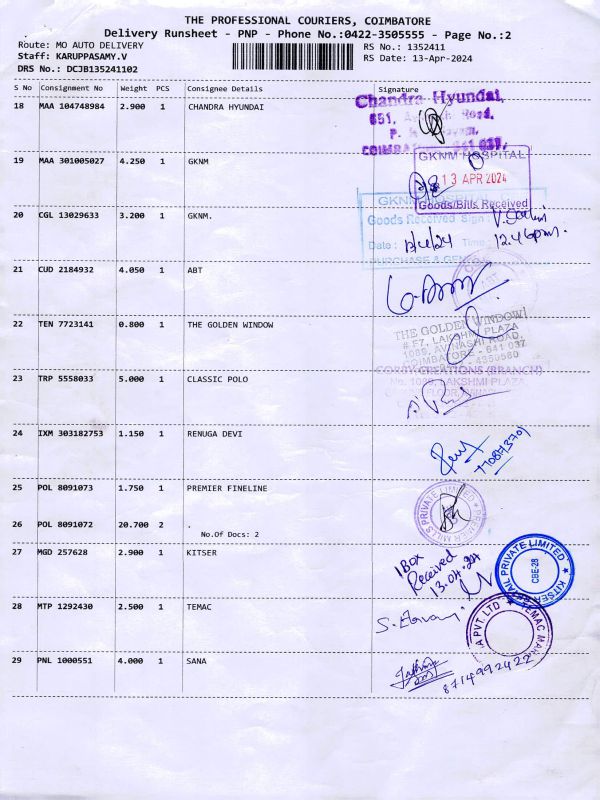 THE PROFESSIONAL COURIERS, COIMBATORE
Delivery Runsheet - PNP - Phone No.:0422-3505555 - Page No.:2
Route: MO AUTO DELIVERY
RS No.: 1352411
Staff: KARUPPASAMY.V
RS Date: 13-Apr-2024
DRS No.: DCJB135241102
S No Consignment No Weight PCS Consignee Details Signature
18 MAA 104748984 2.900 1 CHANDRA HYUNDAI
Chandra Hyundai,
COIMBATORE 641 037.
19 MAA 301005027 4.250 1 GKNM
GKNM HOSPITAL
13 APR 2024
Goods/Bills Received
20 CGL 13029633 3.200 1 GKNM.
GKNM HOSPITAL
Goods Received Sign:
Date: 13/4/24 Time: 12.46pm.
21 CUD 2184932 4.050 1 ABT
22 TEN 7723141 0.800 1 THE GOLDEN WINDOW
THE GOLDEN WINDOW
# F7, LAKSHMI PLAZA
1089, AVINASHI ROAD,
COIMBATORE - 641 037
23 TRP 5558033 5.000 1 CLASSIC POLO
CREATIONS (BRANCH)
No. 1089, LAKSHMI PLAZA
24 IXM 303182753 1.150 1 RENUGA DEVI
25 POL 8091073 1.750 1 PREMIER FINELINE
PREMIER MILLS PRIVATE LIMITED
26 POL 8091072 20.700 2 .
No.Of Docs: 2
27 MGD 257628 2.900 1 KITSER
1 Box
Received
13.04.24
KITSER RETAIL PRIVATE LIMITED
CBE-28
28 MTP 1292430 2.500 1 TEMAC
29 PNL 1000551 4.000 1 SANA
8714992422